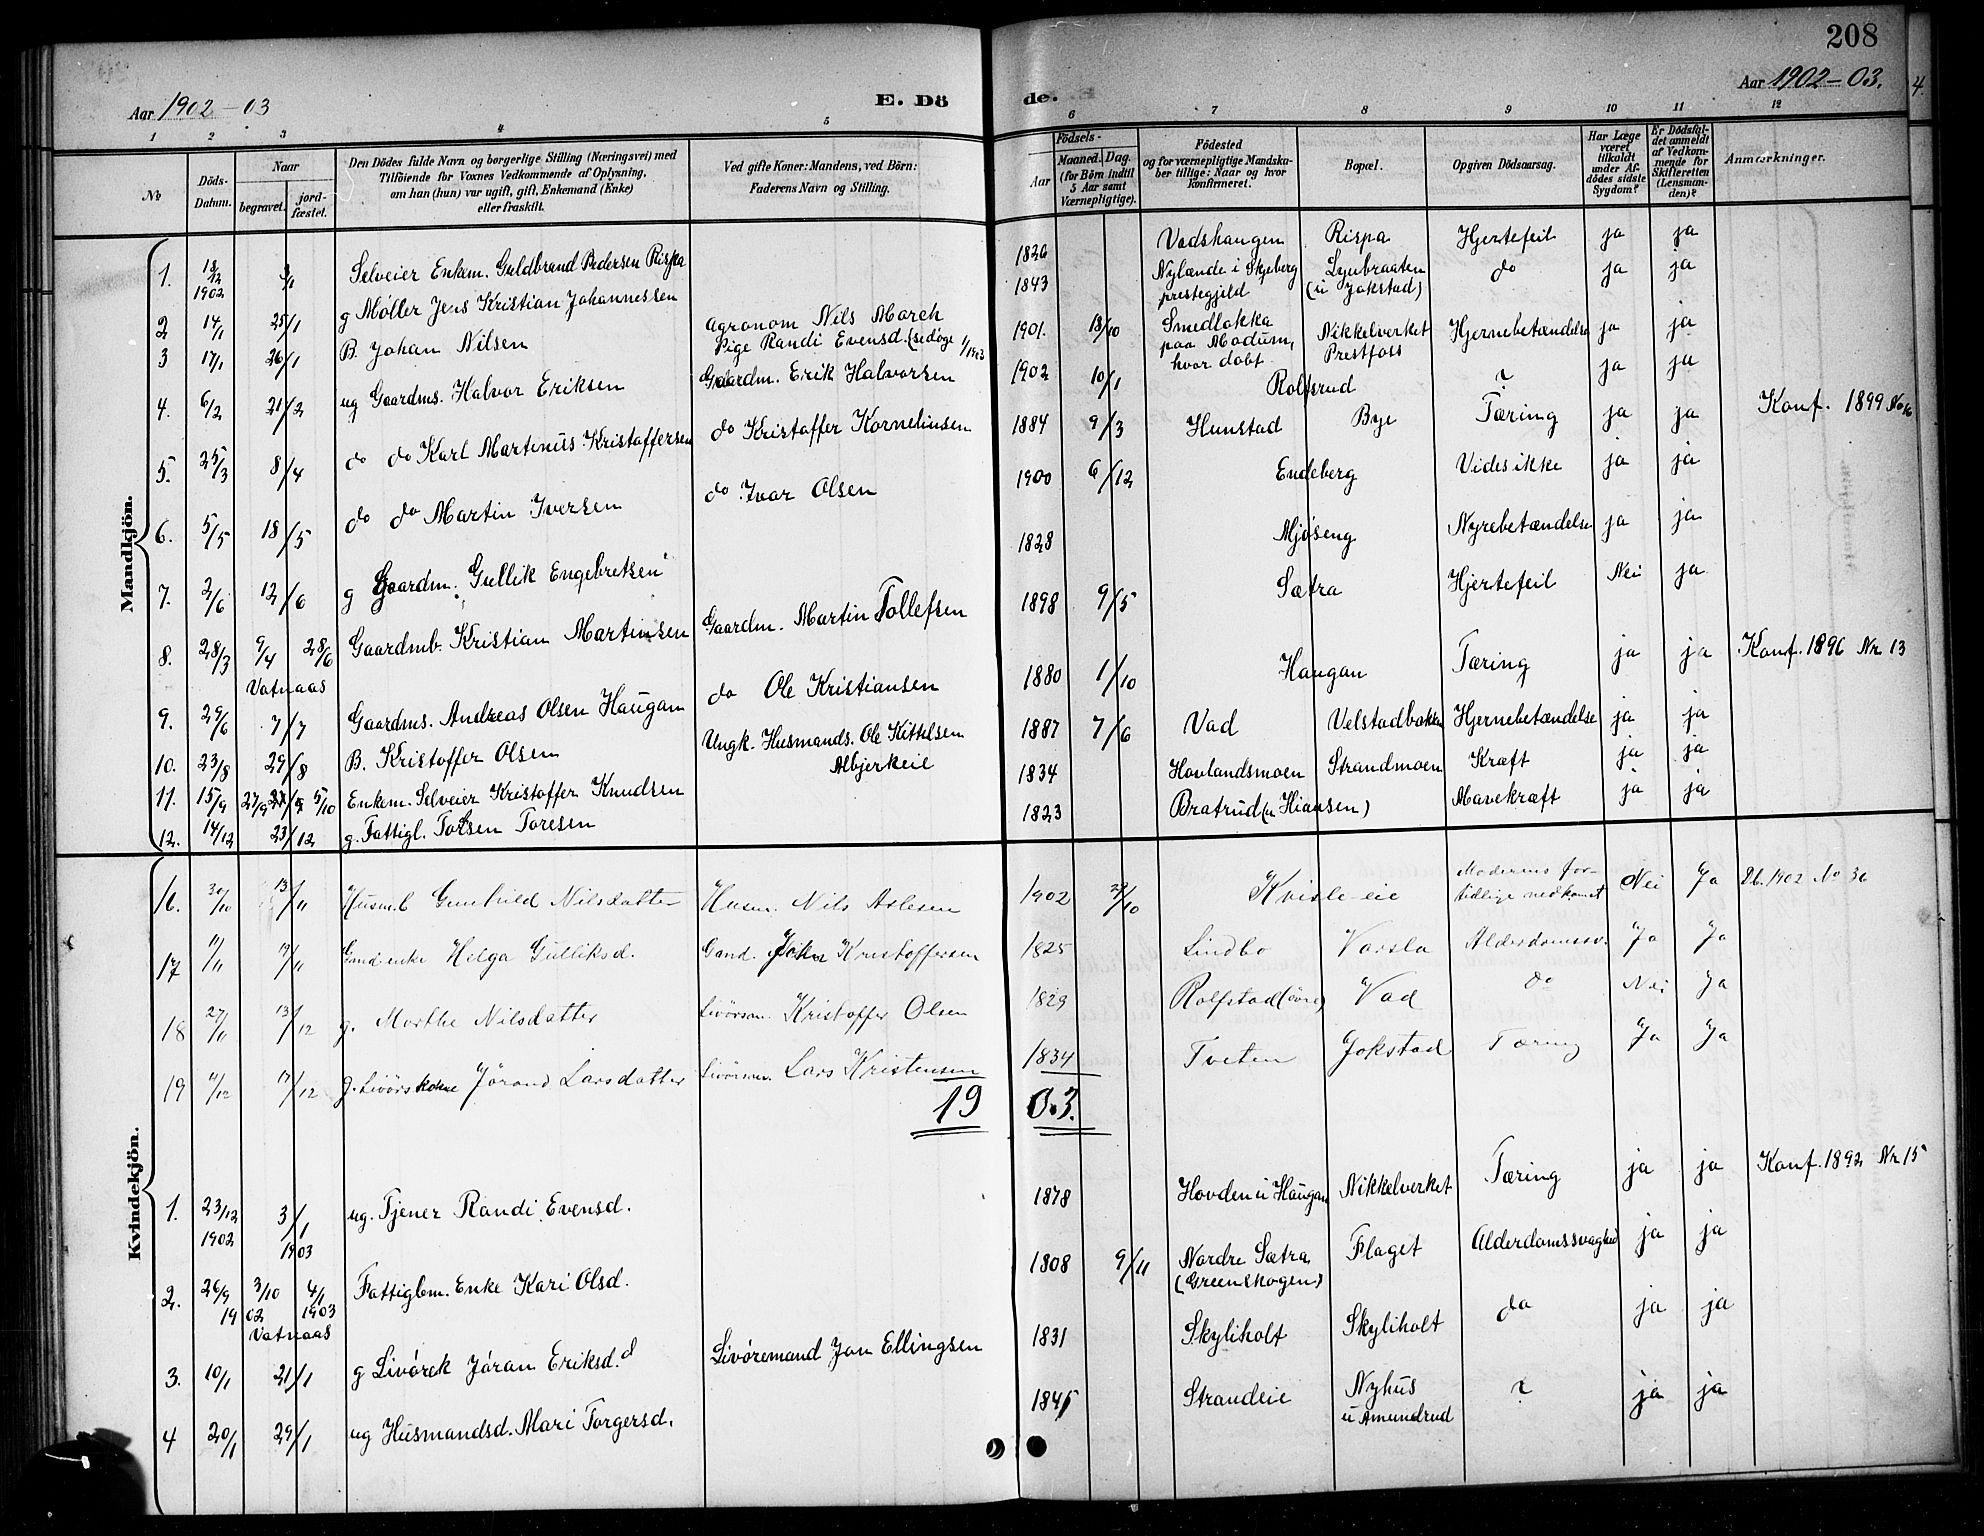 208
Aar 1902-03
E. Dö de.
Aar 1902-03.
4.
1 2 3 4 5 6 7 8 9 10 11 12
No
Döds-Datum.
Naar
begravet.
jord-fæstet.
Den Dödes fulde Navn og borgerlige Stilling (Næringsvei) med
Tilföiende for Voxnes Vedkommende af Oplysning,
om han (hun) var ugift, gift, Enkemand (Enke)
eller fraskilt.
Ved gifte Koner: Mandens, ved Börn:
Faderens Navn og Stilling.
Födsels-
Aar
Maaned. Dag.
(for Börn indtil
5 Aar samt
Værnepligtige).
Födested
og for værnepligtige Mandska-
ber tillige: Naar og hvor
konfirmeret.
Bopæl.
Opgiven Dödsaarsag.
Har Læge
været
tilkaldt
under Af-
dödes sidste
Sygdom?
Er Dödsfal-
det anmeldt
af Vedkom-
mende for
Skifteretten
(Lensman-
den)?
Anmærkninger.
Mandkjön.
1. 18/12 1902 3/1 Selveier Enkem. Guldbrand Pedersen Rispa 1826 Vadshaugen Rispa Hjertefeil ja ja
2 14/1 25/1 g Møller Jens Kristian Johannessen 1843 Nylænde i Skjeberg prestegjeld Lynbraaten (u Jokstad) do ja ja
3 17/1 26/1 B. Johan Nilsen Agronom Nils March Pige Randi Evensd. (se döge 1/1903 1901. 13/10 Smedløkka paa Modum, hvor døbt. Nikkelverket Prestfoss Hjernebetændelse ja ja
4. 6/2 21/2 ug Gaardms. Halvor Eriksen Gaardm. Erik Halvorsen 1902 10/1 Rolfsrud ? ja ja
5. 25/3 8/4 do do Karl Martinus Kristoffersen do Kristoffer Kornelinsen 1884 9/3 Hunstad Bye Tæring ja ja Konf. 1899 No 6
6. 5/5 18/5 do do Martin Iversen do Ivar Olsen 1900 6/12 Endeberg Vides ikke ja ja
7. 2/6 12/6 g Gaardm. Gullik Engebretsen 1828 Mjøseng Nyrebetændelse ja ja
8. 28/3 9/4 28/6 Vatnaas Gaardmb. Kristian Martinsen Gaardm. Martin Tollefsen 1898 9/5 Sætra Hjertefeil Nei ja
9. 29/6 7/7 Gaardms. Andreas Olsen Haugan do Ole Kristiansen 1880 1/10 Haugan Tæring ja ja Konf. 1896 Nr 13
10. 23/8 29/8 B. Kristoffer Olsen Ungk. Husmands. Ole Kittelsen Albjerkeie 1887 7/6 Vad Velstadbakken Hjernebetændelse ja ja
11. 15/9 27/9 5/10 Enkem. Selveier Kristoffer Knudsen 1834 Hovlandsmoen Strandmoen Kræft ja ja
12. 14/12 23/12 g. Fattigl. Torsen Toresen 1823 Bratrud (u Hiansen) Mavekræft ja ja
Kvindekjön.
16. 30/10 13/11 Husm.b Gunhild Nilsdatter Husm. Nils Aslesen 1902 29/10 Kvisle-eie Moderens for-tidlige nedkomst Nei Ja Db. 1902 No 36
17 11/11 17/11 Gmd.enke Helga Gulliksd. Gmd. Kristoffersen 1825 Lindbo Varsla Alderdomssv. Ja Ja
18 27/11 13/12 g. Marthe Nilsdatter Livörsm. Kristoffer Olsen 1829 Rolfstad (övre) Vad do Nei Ja
19 11/12 17/12 g. Livörskone Jörand Larsdatter Livörsm. Lars Kristensen 1834 Tveten Jokstad Tæring Ja Ja
19 03.
1. 23/12 1902 3/1 1903 ug. Tjener Randi Evensd. 1878 Hovden u Haugan Nikkelverket Tæring ja ja Konf. 1892 Nr 15
2. 26/9 1902 3/10 Vatnaas 4/1 1903 Fattiglem. Enke Kari Olsd. 1808 9/11 Nordre Sætra (Greenskogen) Flaget Alderdomssvaghed ja ja
3. 10/1 21/1 g Livörek Jöran Eriksd.d Livöremand Jon Ellingsen 1831 Skyliholt Skyliholt do ja ja
4 20/1 29/1 ug Husmandsd. Mari Torgersd. 1845 Strandeie Nyhus u Amundrud ? ja ja